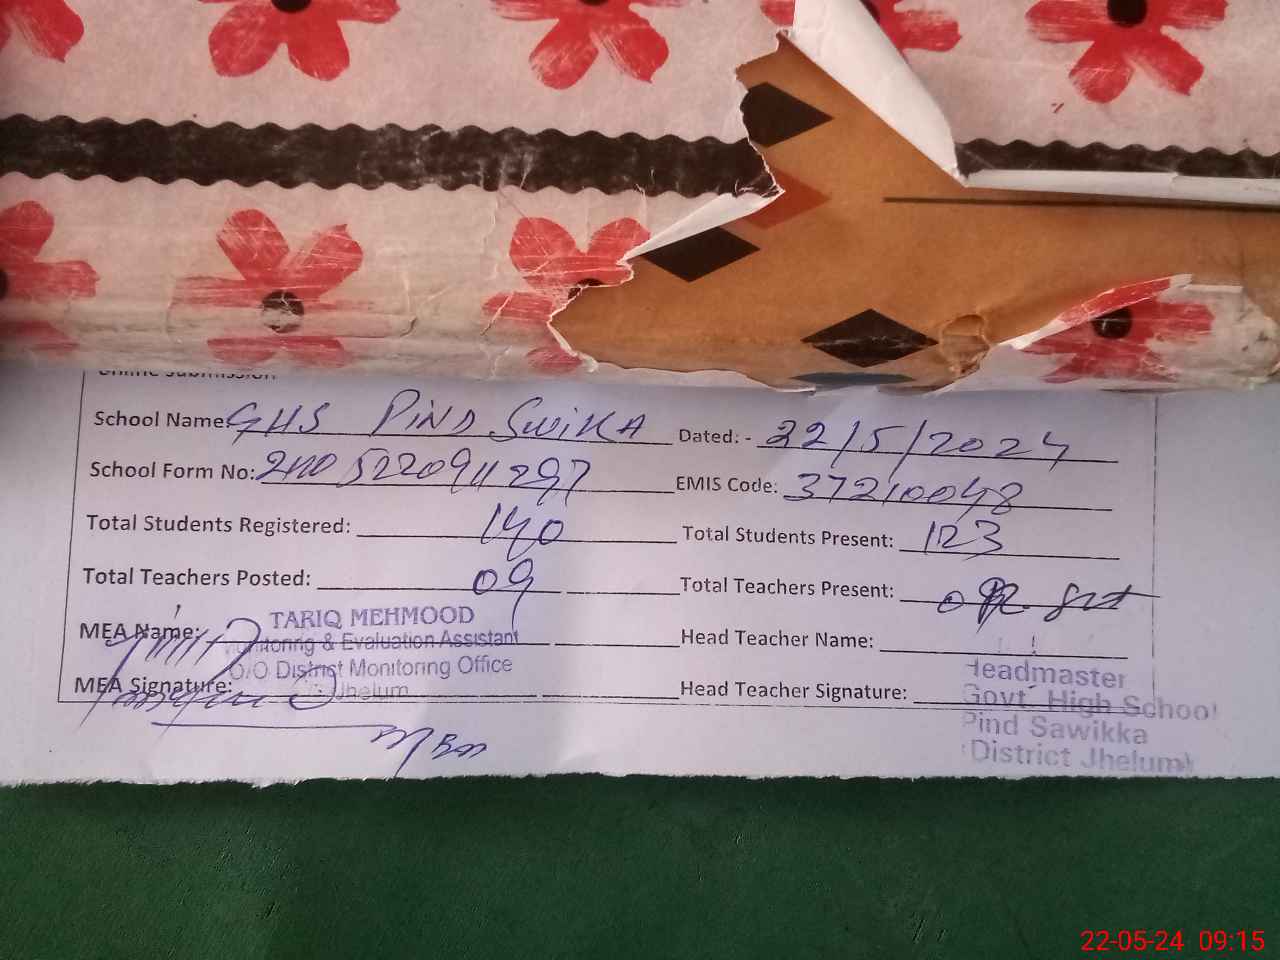 Online Submission
School Name: GHS PIND SWIKA Dated: - 22/5/2024
School Form No: EMIS Code: 37210048
Total Students Registered: 140 Total Students Present: 123
Total Teachers Posted: 09 Total Teachers Present:
MEA Name: TARIQ MEHMOOD Head Teacher Name:
Monitoring & Evaluation Assistant
O/O District Monitoring Office
Jhelum
MEA Signature: Head Teacher Signature:
Headmaster
Govt. High School
Pind Sawikka
(District Jhelum)
22-05-24 09:15